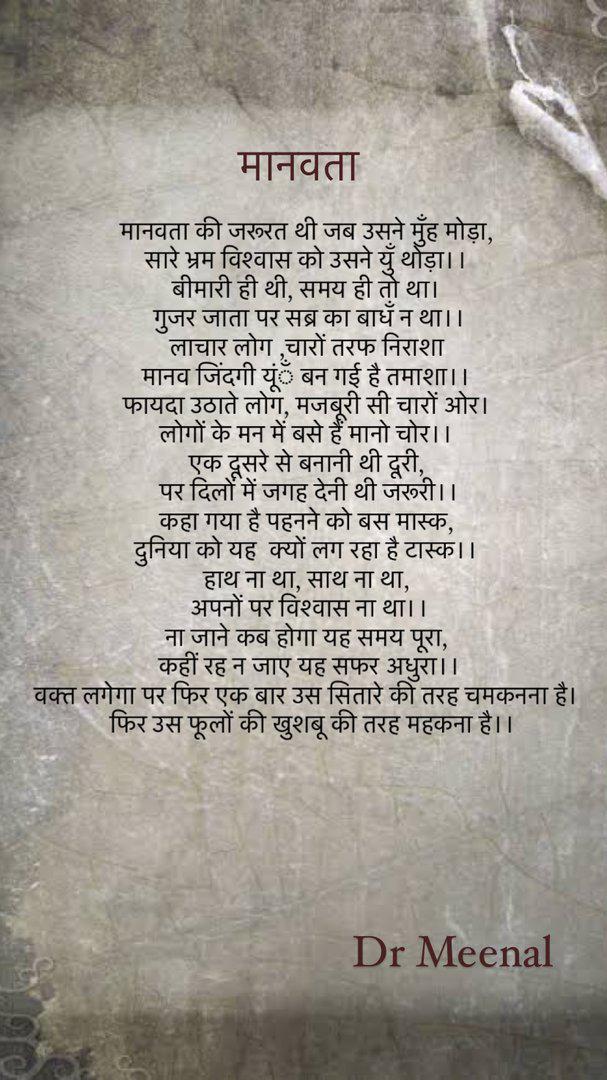 मानवता
मानवता की जरूरत थी जब उसने मुँह मोड़ा,
सारे भ्रम विश्वास को उसने युँ थोड़ा।।
बीमारी ही थी, समय ही तो था।
गुजर जाता पर सब्र का बाधँ न था।।
लाचार लोग ,चारों तरफ निराशा
मानव जिंदगी यूंँ बन गई है तमाशा।।
फायदा उठाते लोग, मजबूरी सी चारों ओर।
लोगों के मन में बसे हैं मानो चोर।।
एक दूसरे से बनानी थी दूरी,
पर दिलों में जगह देनी थी जरूरी।।
कहा गया है पहनने को बस मास्क,
दुनिया को यह क्यों लग रहा है टास्क।।
हाथ ना था, साथ ना था,
अपनों पर विश्वास ना था।।
ना जाने कब होगा यह समय पूरा,
कहीं रह न जाए यह सफर अधुरा।।
वक्त लगेगा पर फिर एक बार उस सितारे की तरह चमकनना है।
फिर उस फूलों की खुशबू की तरह महकना है।।
Dr Meenal